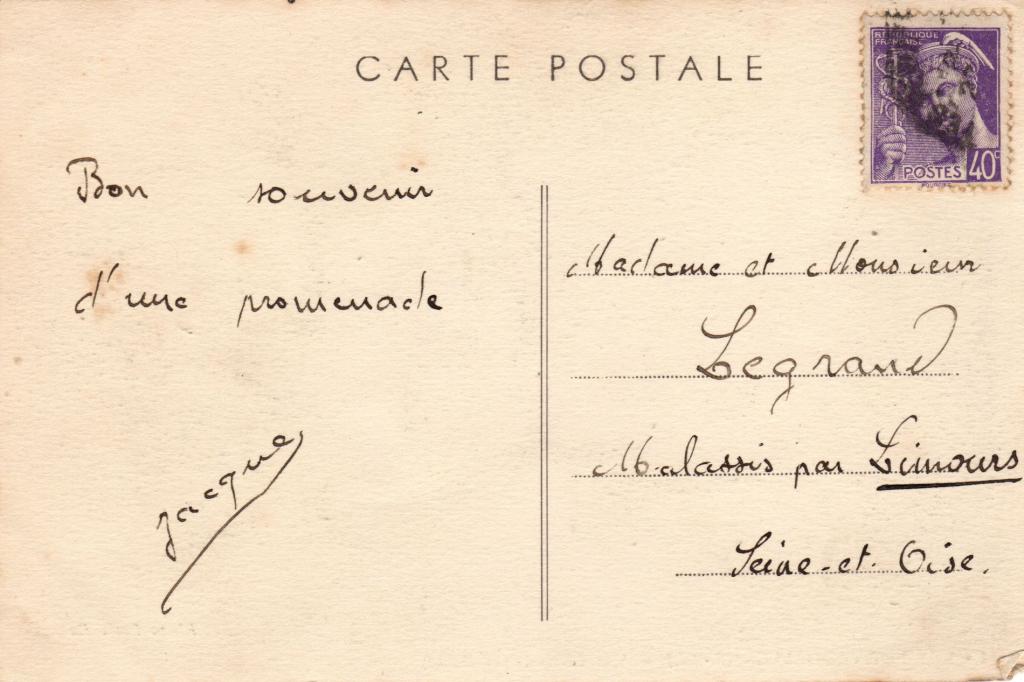 CARTE POSTALE
REPUBLIQUE
FRANÇAISE
POSTES 40c
Bon souvenir
d'une promenade
Jacques
Madame et Monsieur
Legrand
Malassis par Limours
Seine-et-Oise.